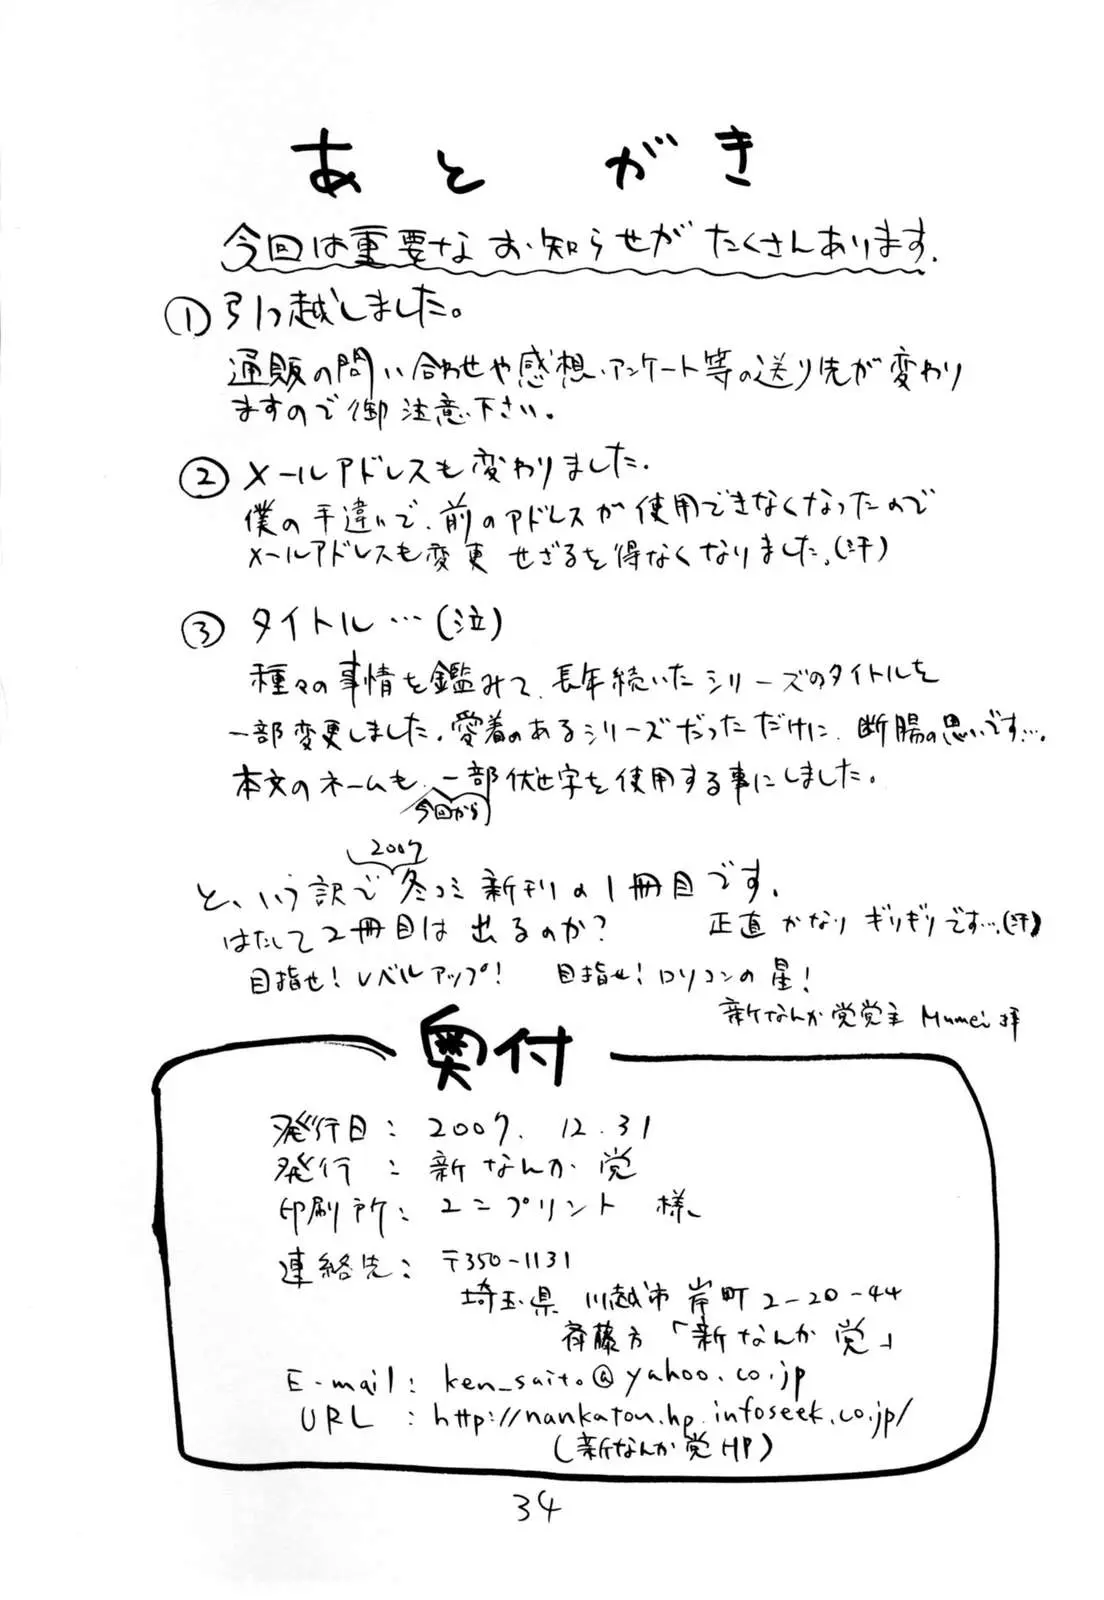 あとがき
今回は重要なお知らせがたくさんあります.
① 引っ越しました。
通販の問い合わせや感想・アンケート等の送り先が変わり
ますので御注意下さい。
② メールアドレスも変わりました.
僕の手違いで、前のアドレスが使用できなくなったので
メールアドレスも変更せざるを得なくなりました。(汗)
③ タイトル…(泣)
種々の事情を鑑みて、長年続いたシリーズのタイトルを
一部変更しました。愛着のあるシリーズだっただけに、断腸の思いです….
本文のネームも、一部伏せ字を使用する事にしました。
今回から
2007
と、いう訳で冬コミ新刊の1冊目です.
はたして2冊目は出るのか? 正直かなりギリギリです…(汗)
目指せ!レベルアップ! 目指せ!ロリコンの星!
新なんか党党主 Mumei 拝
奥付
発行日: 2007. 12.31
発行 : 新なんか党
印刷所: ユニプリント 様
連絡先: 〒350-1131
埼玉県 川越市 岸町2-20-44
斉藤方「新なんか党」
E-mail: ken_saito@yahoo.co.jp
URL : http://nankatou.hp.infoseek.co.jp/
(新なんか党HP)
34